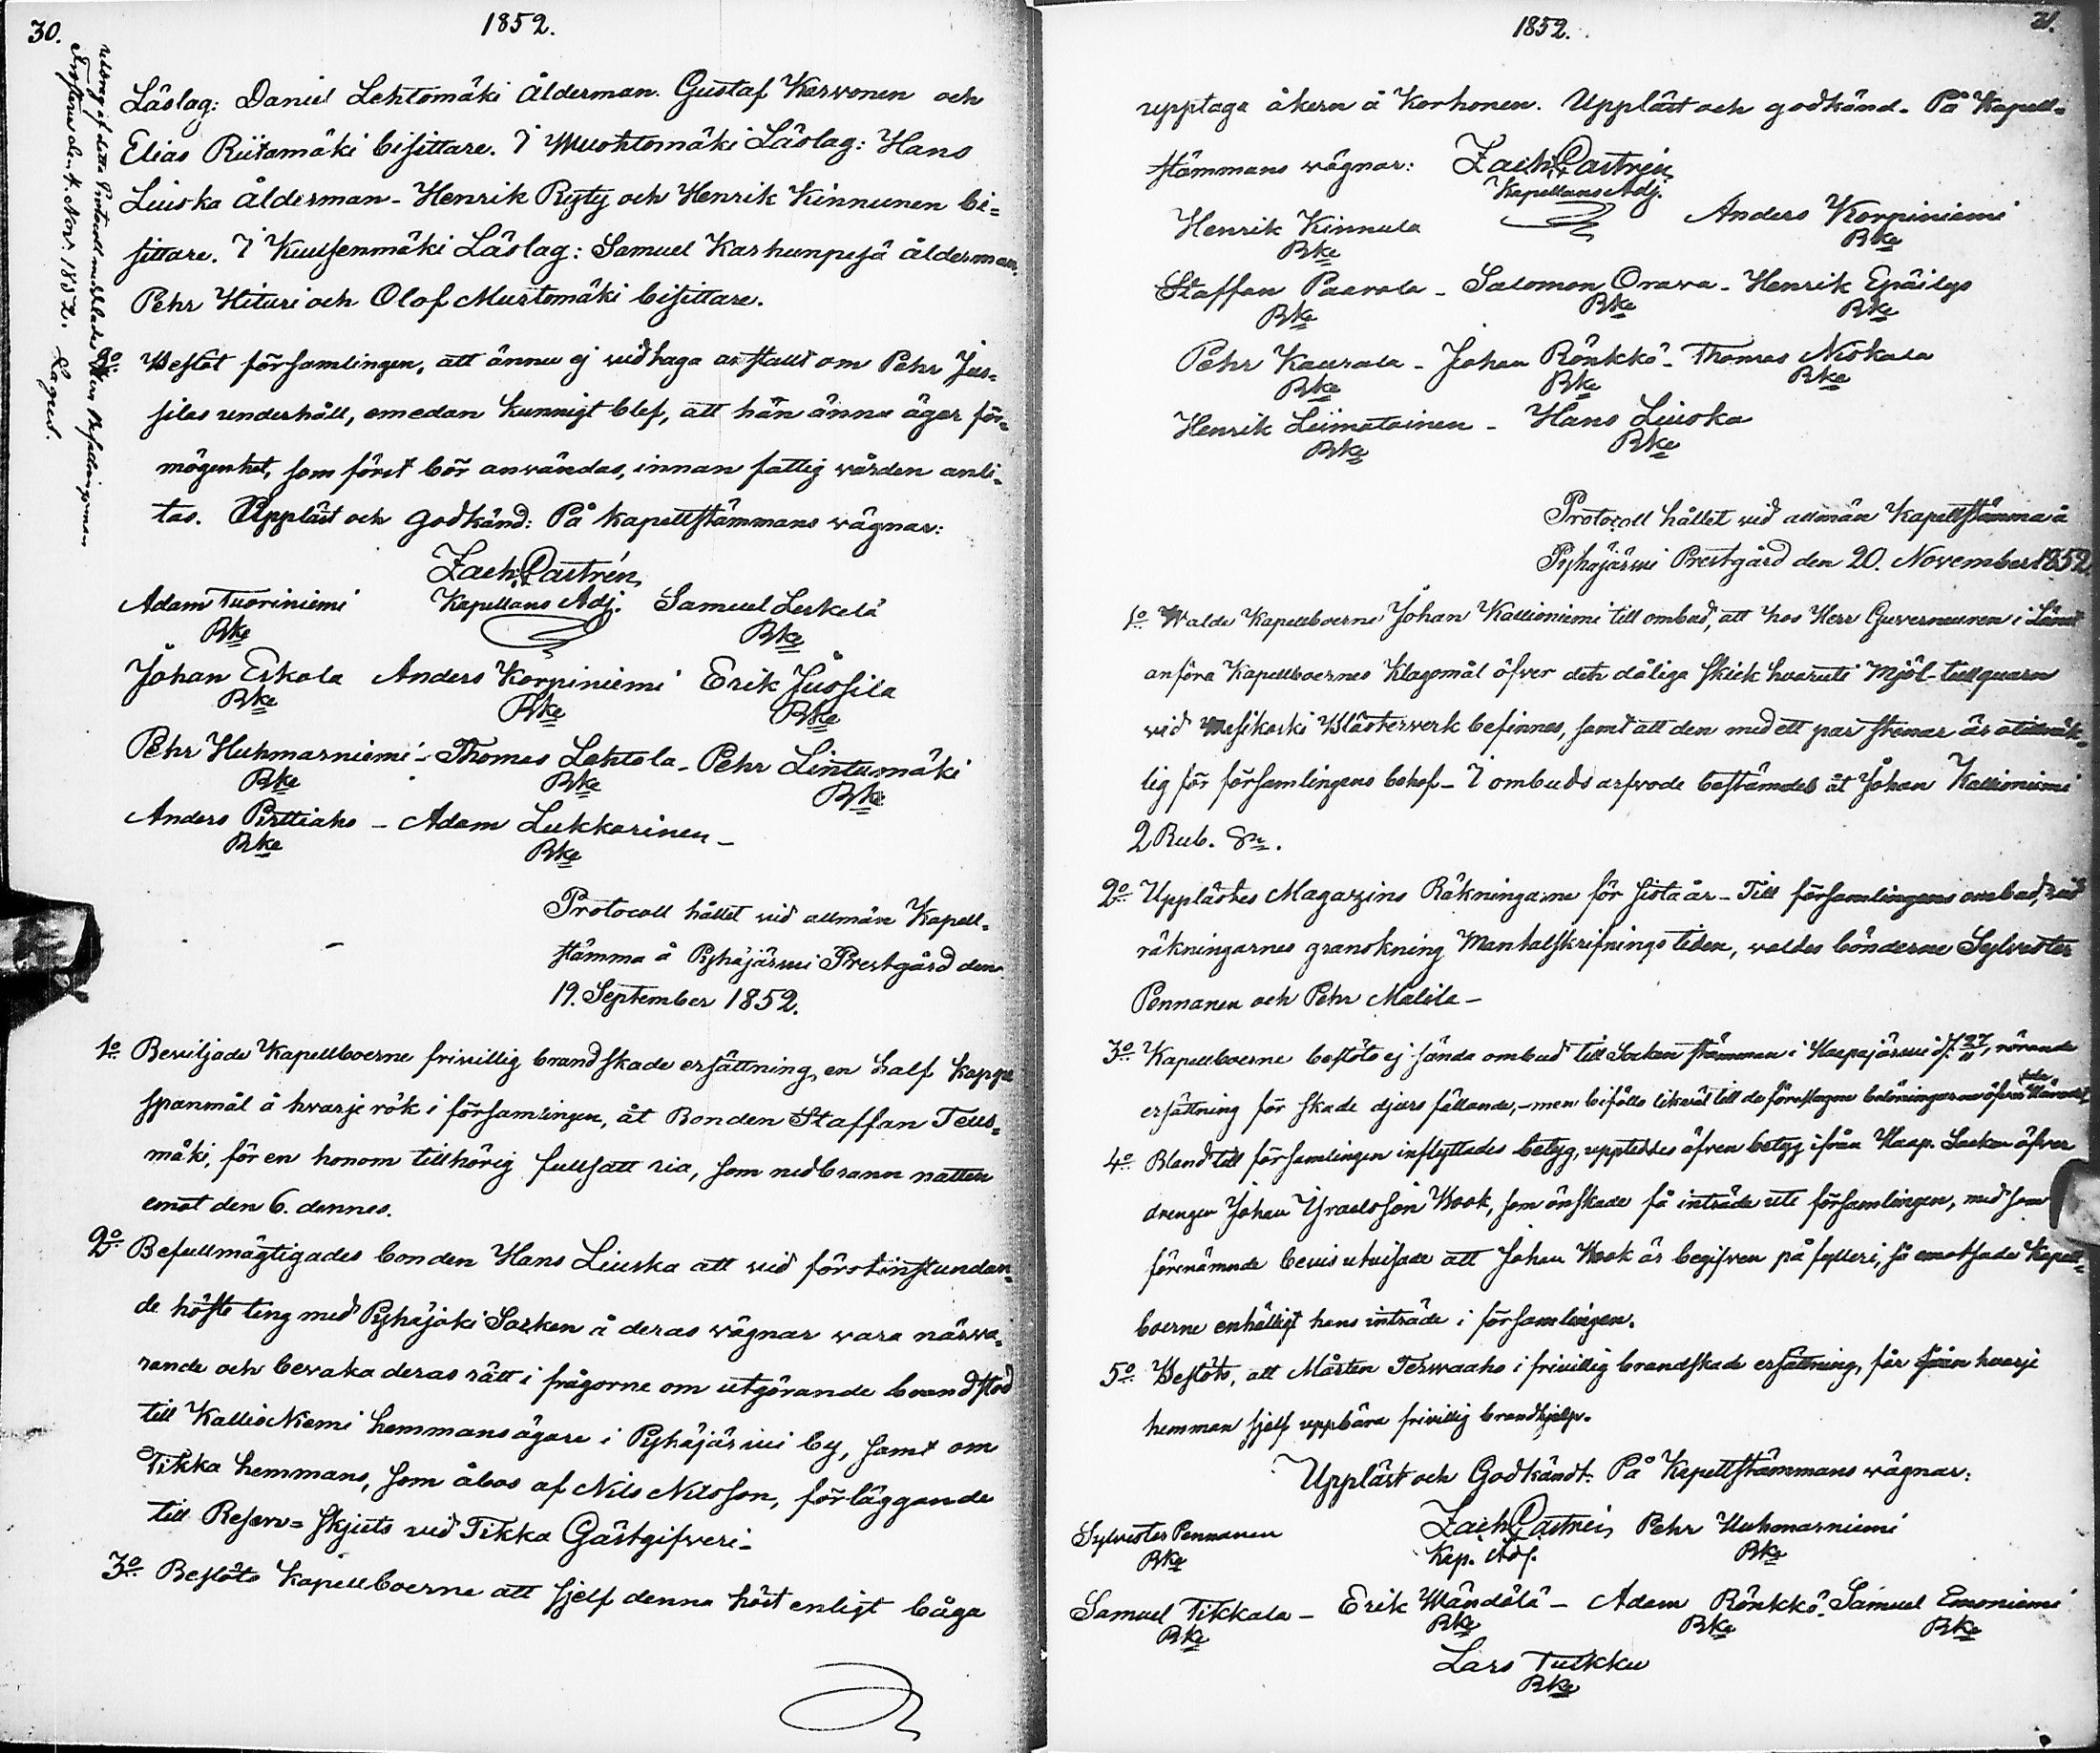 30.
1852.
Utdrag af detta Protocoll meddelades Herr Befallningsman
Frosterus den 4. Nov. 1852. Lagus.
Läslag: Daniel Lehtomäki Ålderman. Gustaf Karvonen och
Elias Riitamäki bisittare. I Muohtomäki Läslag: Hans
Liuska ålderman - Henrik Ryty och Henrik Kinnunen bi=
sittare. I Kuusenmäki Läslag: Samuel Karhunpesä ålderman.
Pehr Hituri och Olof Mustomäki bisittare.
2o Beslöt församlingen, att ännu ej vidtaga anstallt om Pehr Jus=
silas underhåll, emedan kunnigt blef, att hän ännu äger för=
mögenhet, som först bör användas, innan fattig vården anli=
tas. Uppläst och godkänd: På kapellstämmans vägnar:
Zach. Castrén,
Kapellans Adj.
Adam Tuoriniemi Samuel Leskelä
Bke Bke
Johan Eskola Anders Korpiniemi Erik Jussila
Bke Bke Bke
Pehr Huhmarniemi - Thomas Lehtola - Pehr Lintumäki
Bke Bke Bke
Anders Pirttiaho - Adam Lukkarinen -
Bke Bke
Protocoll hållet vid allmän Kapell=
stämma å Pyhäjärvi Prestgård den
19. September 1852.
1o Beviljade Kapellboerne frivillig brandskade ersättning, en half kappe
spanmål å hvarje rök i församlingen, åt Bonden Staffan Teus=
mäki, för en honom tillhörig fullsatt ria, som nedbrann natten
emot den 6. dennes.
2o Befullmägtigades bonden Hans Liuska att vid förstinstundan=
de höste ting med Pyhäjoki Socken å deras vägnar vara närva=
rande och bevaka deras rätt i frågorne om utgörande brandstod
till Kallio Niemi hemmansägare i Pyhäjärvi by, samt om
Tikka hemmans, som åbos af Nils Nilsson, förläggande
till Reserv= skjuts vid Tikka Gästgifveri -
3o Beslöto Kapellboerne att sjelf denna höst enligt båga
1852.
31.
upptaga åkern å Korhonen. Uppläst och godkänd. På Kapell=
stämmans vägnar: Zach. Castrén,
Kapellans Adj.
Henrik Kinnula Anders Korpiniemi
Bke Bke
Staffan Paavola - Salomon Orava - Henrik Epäilys
Bke Bke Bke
Pehr Kaurala - Johan Rönkkö - Thomas Niskala
Bke Bke Bke
Henrik Liimatainen - Hans Liuska
Bke Bke
Protocoll hållet vid allmän Kapellstämma å
Pyhäjärvi Prestgård den 20. November 1852.
1o Walde Kapellboerne Johan Kallioniemi till ombud, att hos Herr Guverneuren i Länet
anföra Kapellboernes Klagomål öfver det dåliga skick hvaruti Mjöl-tullquarn
vid Vesikoski Blästerverk befinnes, samt att den med ett par stenar är otillräk=
lig för församlingens behof - I ombuds arfvode bestämdes åt Johan Kallioniemi
2 Rub. Sr.
2o Upplästes Magazins Räkningarne för sista år - Till församlingens ombud, vid
räkningarnes granskning Mantalskrifnings tiden, valdes bönderne Sylvester
Pennanen och Pehr Malila -
3o Kapellboerne beslöto ej sända ombud till Socken stämman i Haapajärvi d. 27/11, rörande
ersättning för skade djurs fällande, - men biföllo likväl till de föreslagne belöningarne öfver
4o Bland till församlingen inflyttades betyg, uppteddes äfven betyg ifrån Haap. Socken öfver
drengen Johan Ysraelsson Kook, som önskade få inträde uti församlingen, med som
förenämnde bevis utvisade att Johan Kook är begifven på fylleri, så emotsade Kapell=
boerne enhälligt hans inträde i församlingen.
5o Beslöts, att Mårten Terwaaho i frivillig brandskade ersättning, får från hvarje
hemman sjelf uppbära frivillig brandhjelp.
Uppläst och Godkändt. På Kapellstämmans vägnar:
Zach. Castrén,
Kap. Adj.
Sylvester Pennanen Pehr Huhmarniemi
Bke Bke
Samuel Tikkala - Erik Mändälä - Adam Rönkkö. Samuel Emoniemi
Bke Bke Bke Bke
Lars Tuikku
Bke